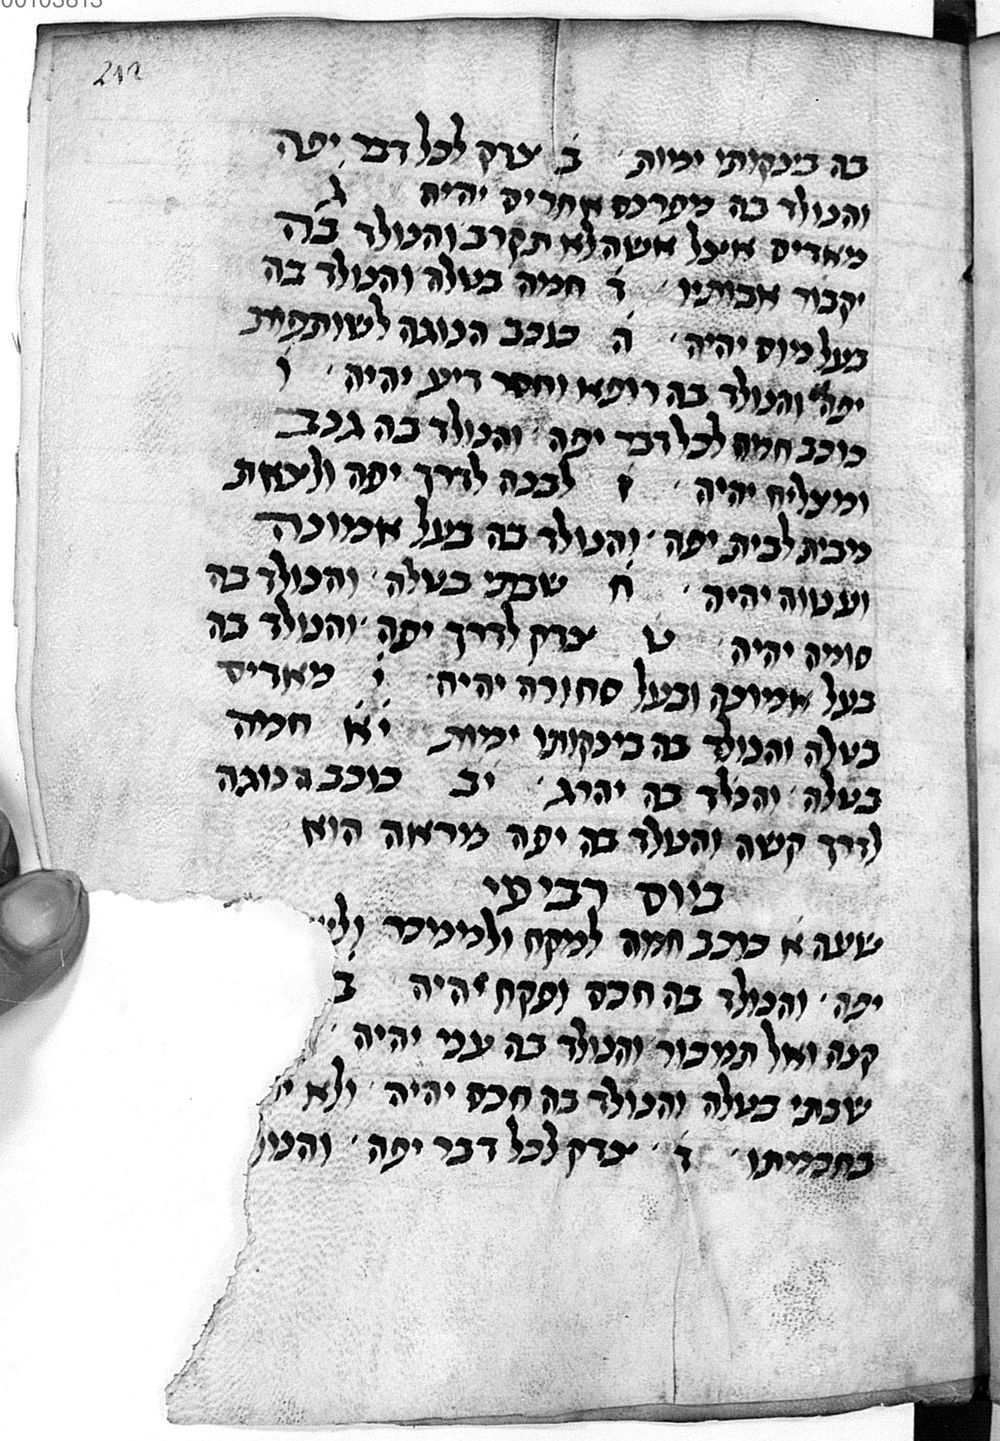 00103813
212
בה בינקותו ימות ב צדק לכל דבר יפה
והנולד בה מפרנס אחרים יהיה ג
מאדים אוכל אשה לא תקרב והנולד בה
יקבור אבותיו ד חמה בטלה והנולד בה
בעל מום יהיה ה כוכב הנוגה לשותפות
יפה והנולד בה רופא וחסר דיע יהיה ו
כוכב חמה לכל דבר יפה והנולד בה גנב
ומצליח יהיה ז לבנה לדרך יפה ולצאת
מבית לבית יפה והנולד בה בעל אמונה
ועטוה יהיה ח שבתי בטלה והנולד בה
סומה יהיה ט צדק לדרך יפה והנולד בה
בעל אמונה ובעל סחורה יהיה י מאדים
בטלה והנולד בה בינקותו ימות יא חמה
בטלה והנולד בה יהרג יב כוכב נוגה
לדרך קשה והנולד בה יפה מראה הוא
ביום רביעי
שעה א כוכב חמה למקח ולממכר
יפה והנולד בה חכם ופקח יהיה ב
קנה ואל תמכור והנולד בה עני יהיה
שבתי בטלה והנולד בה חכם יהיה ולא
בחכמיתו ד צדק לכל דבר יפה